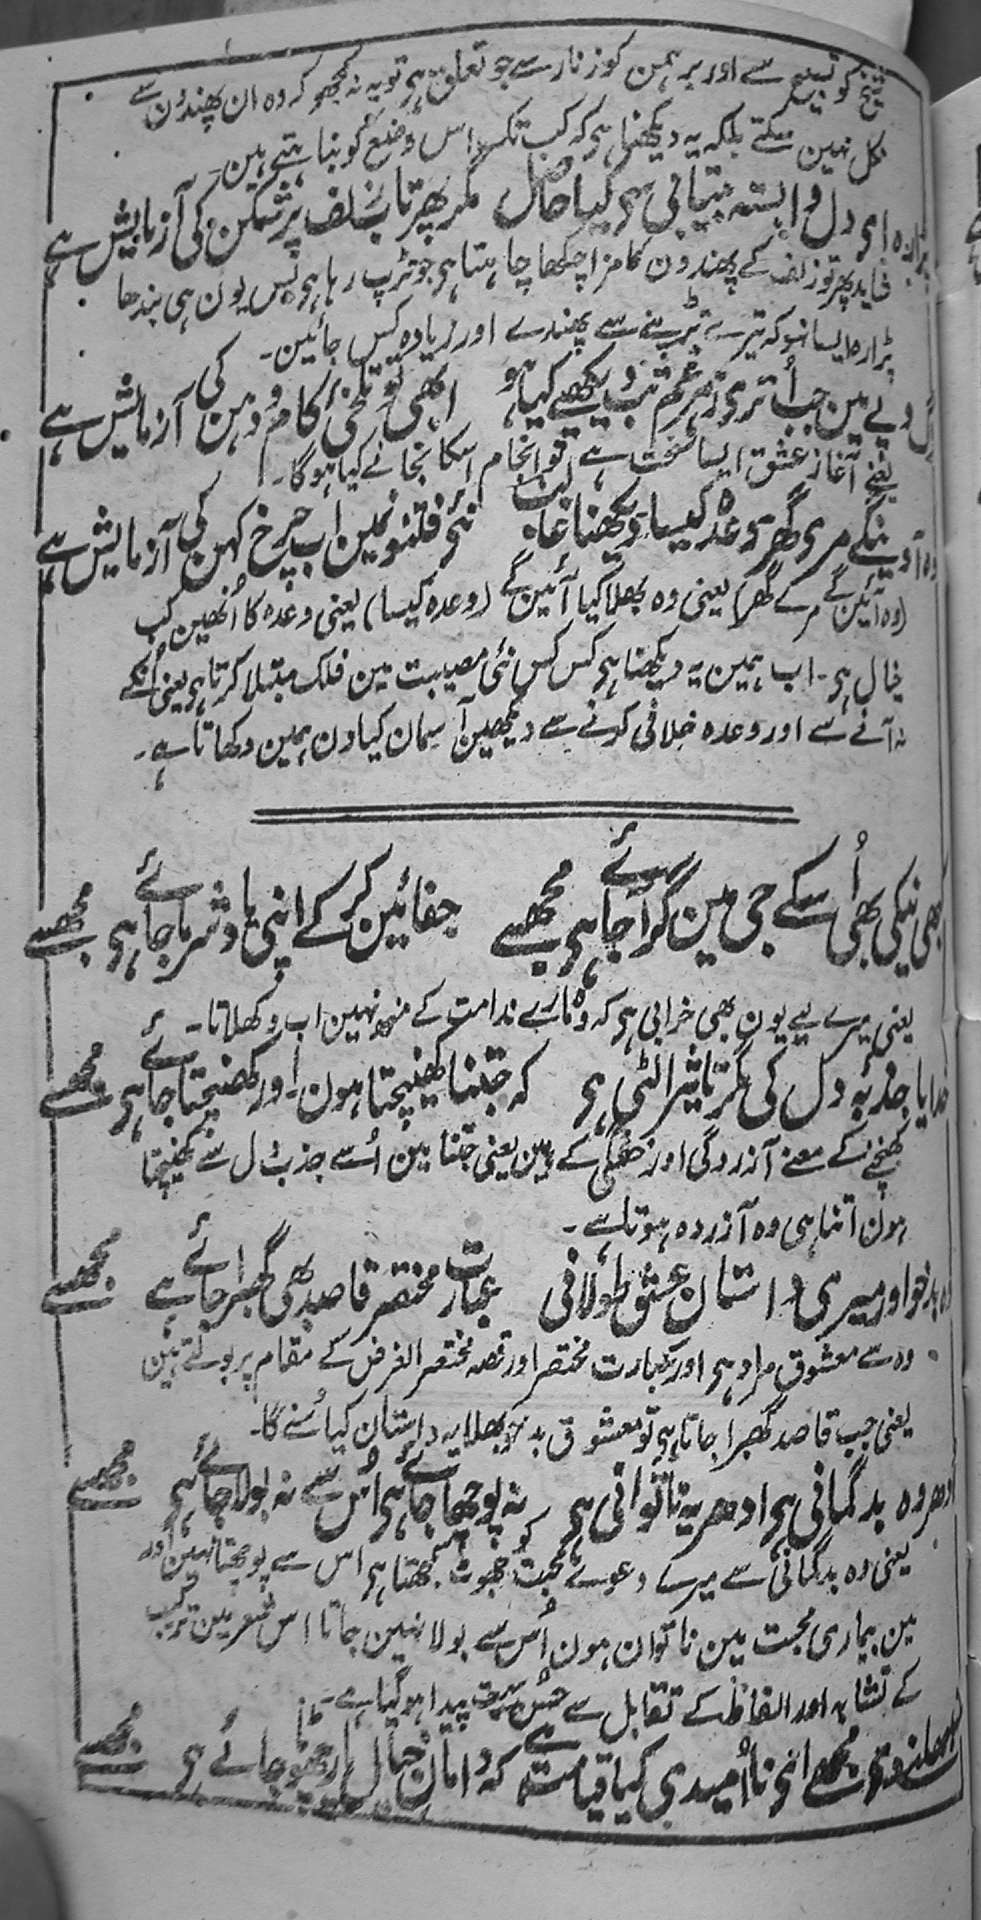 شیخ کو تسبیح سے اور برہمن کو زنار سے جو تعلق ہی تو یہ نہ سمجھو کہ وہ ان پھندوں سے
نکل نہین سکتے بلکہ یہ دیکھنا ہی کہ کب تک اس وضع کو بناہتے ہین۔
پڑا رہ ای دل وابستہ بیتابی سی کیا حاصل مگر پھر تاب زلف پرشکن کی آزمایش ہے
شاید پھر تو زلف کے پھندون کا مزا چکھا چاہتا ہی جو تڑپ رہا ہی بس یون ہی بندھا
پڑا رہ ایسا نہو کہ تیرے تڑپنے سے پھندے اور زیادہ کس جائین۔
رگ و پے مین جب اُترے زہر غم تب دیکھیے کیا ہو ابھی تو تلخی کام و دہن کی آزمایش ہے
یعنے آغاز عشق ایسا سخت ہے تو انجام اسکا نجانے کیا ہو گا۔
وہ آوینگے مری گھر وعدہ کیسا دیکھنا غالب نئی فتنو نمین اب چرخ کہن کی آزمایش ہے
(وہ آئین گے مرے گھر) یعنی وہ بھلا کیا آئین گے (وعدہ کیسا) یعنی وعدہ کا اُنھین کب
خیال ہی۔ اب ہمین یہ دیکھنا ہی کس کس نئی مصیبت مین فلک مبتلا کرتا ہی یعنی اُنکے
نہ آنے سے اور وعدہ خلافی کرنے سے دیکھین آسمان کیا دن ہمین دکھاتا ہے۔
کبھی نیکی بھی اُسکے جی مین گر آجائے ہی مجھسے جفائین کر کے اپنی یاد شرما جائے ہی مجھسے
یعنی میرے لیے یون بھی خرابی ہی کہ وہ مارے ندامت کے منھ نہین اب دکھلاتا۔
خدایا جذبۂ دل کی مگر تاثیر الٹی ہی کہ جتنا کھینچتا ہون اور کھنچتا جائے ہی مجھسے
کھنچنے کے معنے آزردگی اور خفگی کے ہین یعنی جتنا مین اُسے جذب دل سے کھینچتا
ہون اتنا ہی وہ آزردہ ہوتا ہے۔
وہ بدخو اور میری داستان عشق طولانی عبارت مختصر قاصد بھی گھبرا جائے ہے مجھسے
وہ سے معشوق مراد ہی اور عبارت مختصر اور قصہ مختصر الغرض کے مقام پر بولتے ہین
یعنی جب قاصد گھبرا جاتا ہی تو معشوق بدخو بھلا یہ داستان کیا سُنے گا۔
اُدھر وہ بدگمانی ہی ادھر یہ ناتوانی ہی نہ پوچھا جائے ہی اُس سے نہ بولا جائے ہی مجھسے
یعنی وہ بدگمانی سے میرے دعوے محبت کو جھوٹ سمجھتا ہی اس سے پوچھتا نہین اور
مین بیماری محبت مین ناتوان ہون اُس سے بولا نہین جاتا اس شعر مین ترکیب
کے تشابہ اور الفاظ کے تقابل سے حسن پیدا ہو گیا ہے۔
سنبھلنے دے مجھے ای نا اُمیدی کیا قیامت ہے کہ دامان خیال یار چھوٹا جائے ہی مجھسے